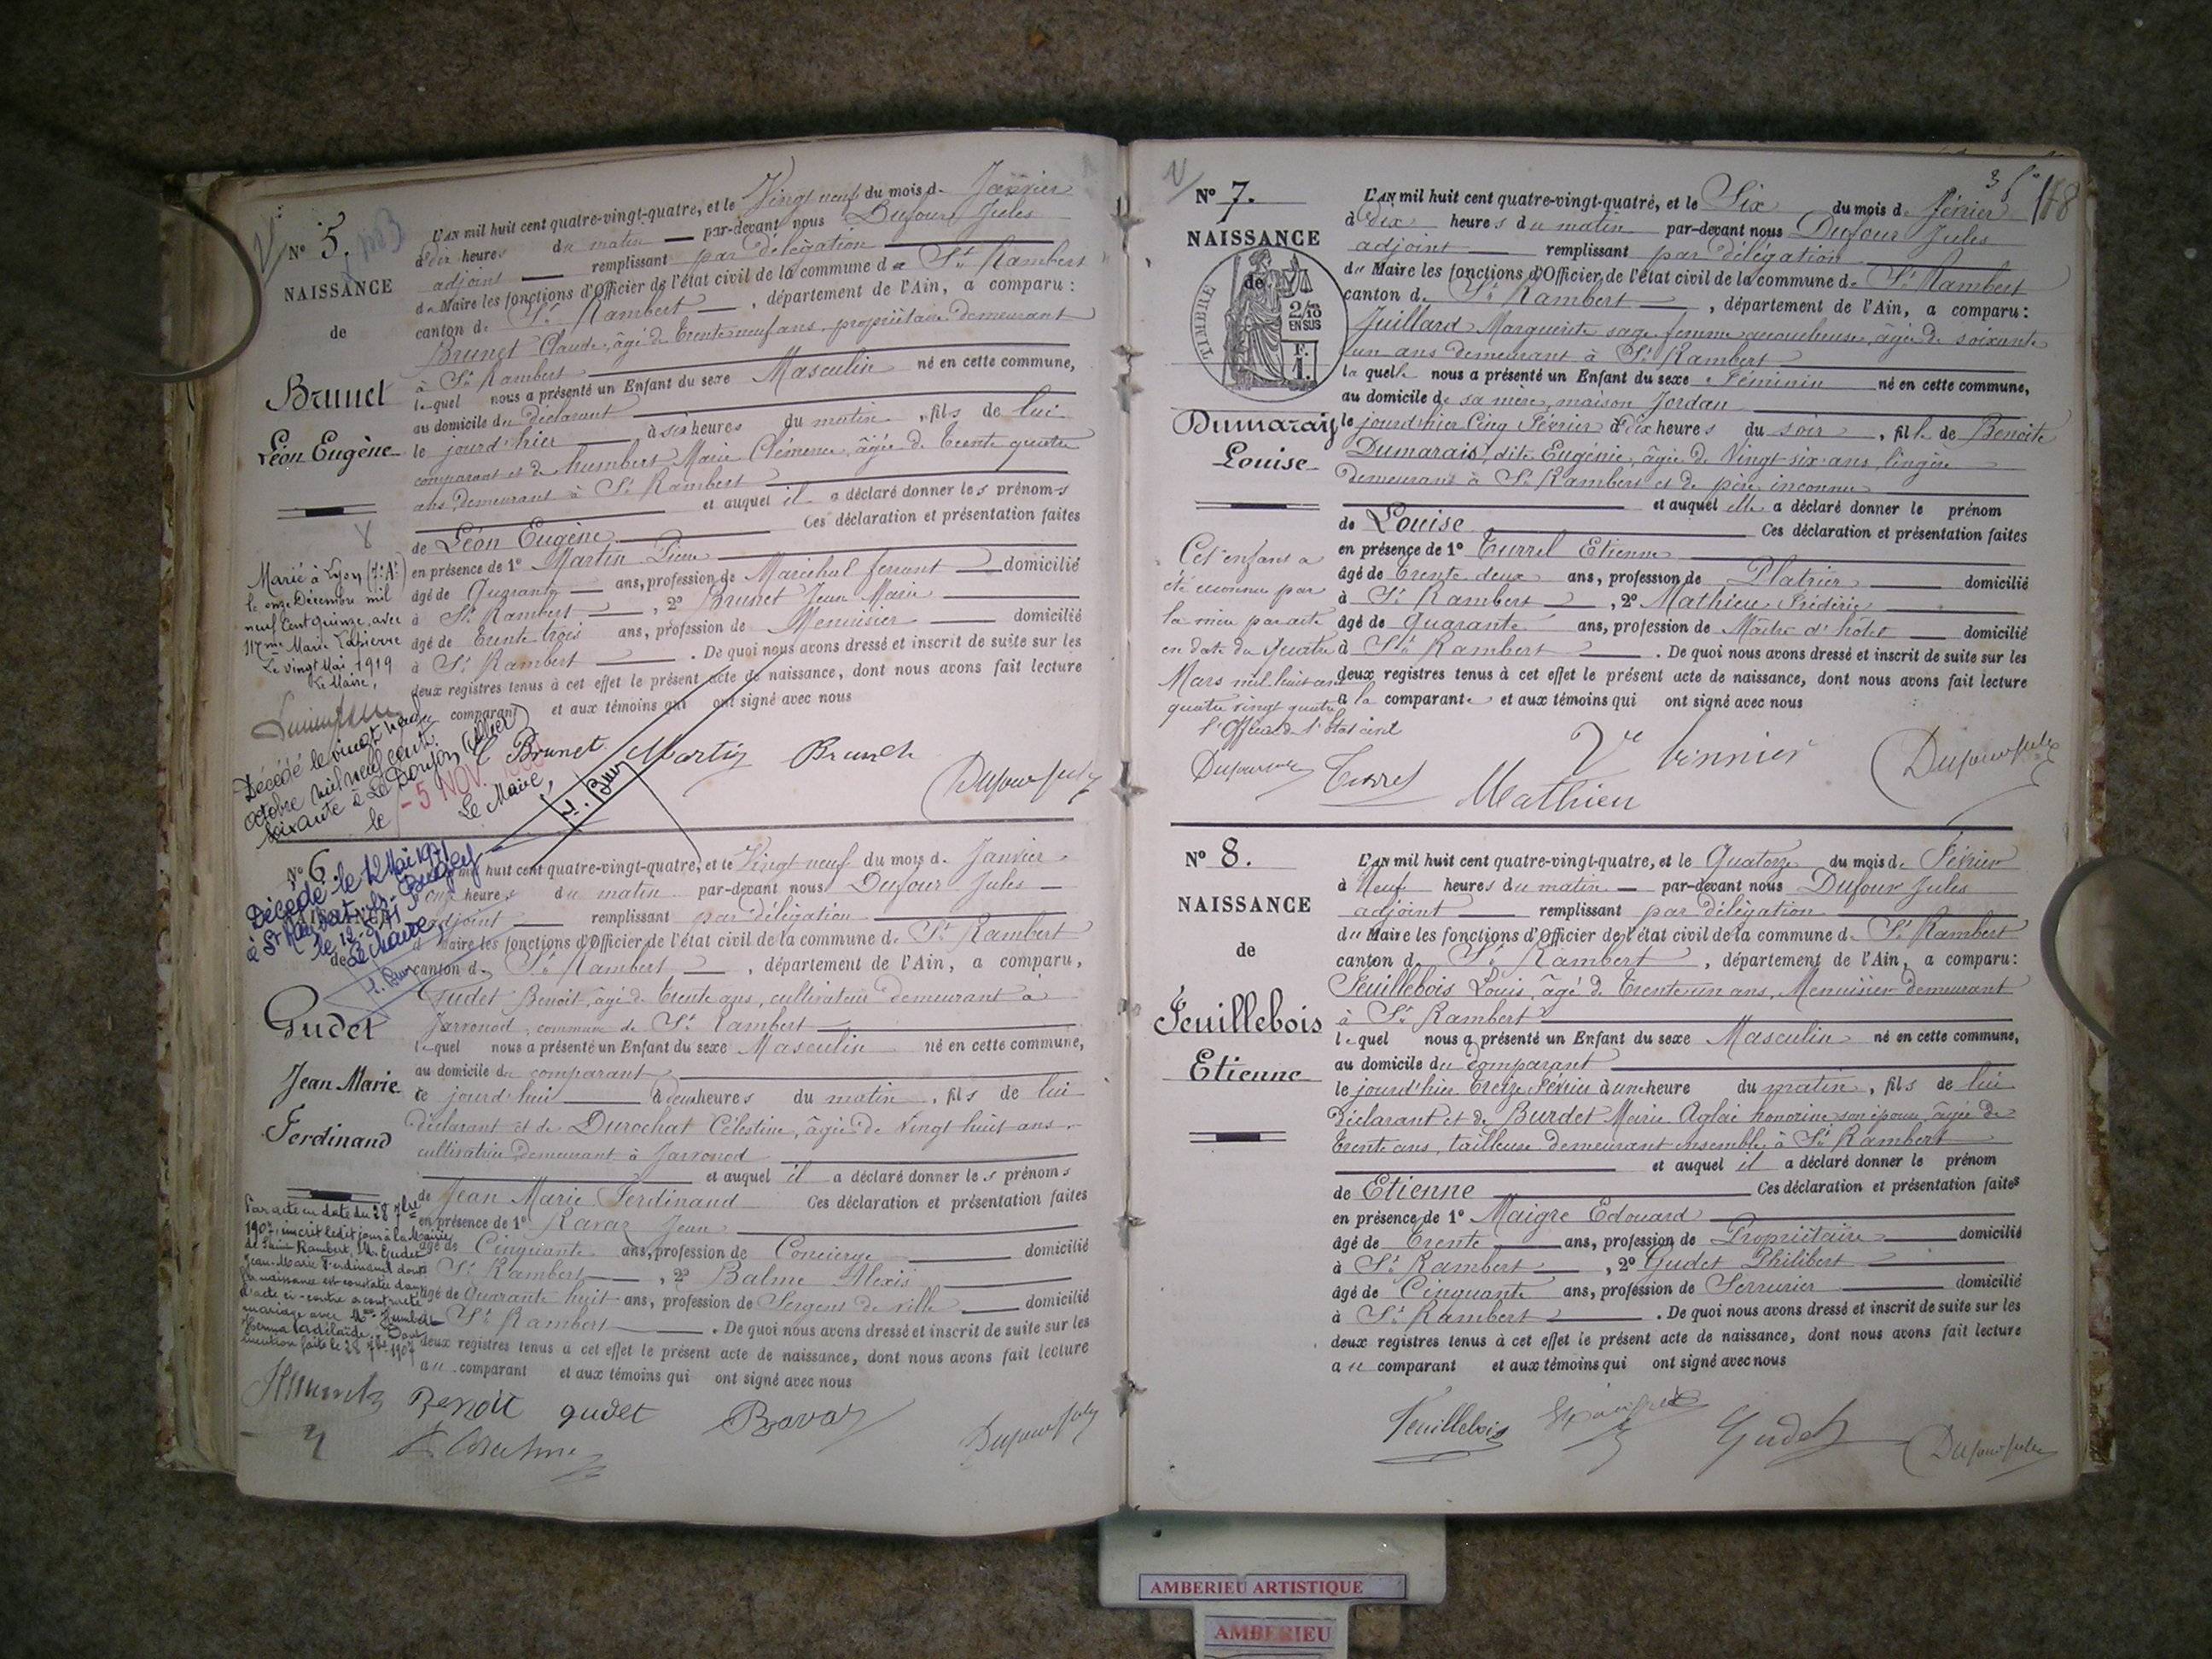 N° 5.
NAISSANCE
de
Brunet
Léon Eugène
L'AN mil huit cent quatre-vingt-quatre, et le Vingt neuf du mois d. Janvier
à dix heures du matin par-devant nous Dufour Jules
adjoint remplissant par délégation
du Maire les fonctions d'Officier de l'état civil de la commune de St Rambert
canton de St Rambert, département de l'Ain, a comparu :
Brunet Claude, âgé de trente neuf ans, propriétaire demeurant
à St Rambert
lequel nous a présenté un Enfant du sexe Masculin né en cette commune,
au domicile du déclarant
le jourd'hier à six heures du matin, fils de lui
comparant et de humbert Marie Clémence, âgée de trente quatre
ans, demeurant à St Rambert
et auquel il a déclaré donner les prénoms
de Léon Eugène Ces déclaration et présentation faites
en présence de 1° Martin Pierre
âgé de Quarante ans, profession de Maréchal ferrant domicilié
à St Rambert, 2° Brunet Jean Marie
âgé de trente trois ans, profession de Menuisier domicilié
à St Rambert. De quoi nous avons dressé et inscrit de suite sur les
deux registres tenus à cet effet le présent acte de naissance, dont nous avons fait lecture
au comparant et aux témoins qui ont signé avec nous
Marié à Lyon (7e At)
le onze Décembre mil
neuf Cent quinze, avec
Mme Marie Lapierre
Le vingt Mai 1919
Le Maire,
Décédé le vingt neuf
octobre mil neuf cent
soixante à Le Donjon (Allier)
le - 5 NOV.
Le Maire,
C Brunet Martin Brunet
Dufour Jules
N° 6.
NAISSANCE
de
Gudet
Jean Marie
Ferdinand
Décédé le 12 Mai 1971
à St Rambert-en-Bugey
le 12-5-71
Le Maire
L'AN mil huit cent quatre-vingt-quatre, et le Vingt neuf du mois d. Janvier
à onze heures du matin par-devant nous Dufour Jules
adjoint remplissant par délégation
du Maire les fonctions d'Officier de l'état civil de la commune d. St Rambert
canton d. St Rambert, département de l'Ain, a comparu,
Gudet Benoit, âgé de trente ans, cultivateur demeurant à
Javronod, commune de St Rambert
lequel nous a présenté un Enfant du sexe Masculin né en cette commune,
au domicile du comparant
ce jourd'hui à deux heures du matin, fils de lui
déclarant et de Durochat Célestine, âgée de Vingt huit ans
cultivatrice demeurant à Javronod
et auquel il a déclaré donner les prénoms
de Jean Marie Ferdinand Ces déclaration et présentation faites
en présence de 1° Ravaz Jean
âgé de Cinquante ans, profession de Concierge domicilié
à St Rambert, 2° Balme Alexis
âgé de Quarante huit ans, profession de Sergent de ville domicilié
à St Rambert. De quoi nous avons dressé et inscrit de suite sur les
deux registres tenus à cet effet le présent acte de naissance, dont nous avons fait lecture
au comparant et aux témoins qui ont signé avec nous
Par acte en date du 28 7bre
1907, inscrit ledit jour à la Mairie
de Saint Rambert, Mr Gudet
Jean-Marie Ferdinand dont
la naissance est constatée dans
l'acte ci-contre a contracté
mariage avec Mlle Humbert
Adélaïde. Dont
mention faite le 28 7bre 1907
Benoit gudet Ravaz
Dufour Jules
N° 7.
NAISSANCE
de
TIMBRE
2/10
EN SUS
F.
1.
Dumaray
Louise
L'AN mil huit cent quatre-vingt-quatre, et le Six du mois d. Février
à dix heures du matin par-devant nous Dufour Jules
adjoint remplissant par délégation
du Maire les fonctions d'Officier de l'état civil de la commune d. St Rambert
canton d. St Rambert, département de l'Ain, a comparu :
Juillard Marguerite sage femme accoucheuse, âgée de soixante
un ans demeurant à St Rambert
laquelle nous a présenté un Enfant du sexe Féminin né en cette commune,
au domicile de sa mère, maison Jordan
le jourd'hier Cinq Février à dix heures du soir, fille de Benoite
Dumarais, dite Eugénie, âgée de Vingt six ans, lingère
demeurant à St Rambert et de père inconnu
et auquel elle a déclaré donner le prénom
de Louise Ces déclaration et présentation faites
en présence de 1° Turrel Etienne
âgé de trente deux ans, profession de Platrier domicilié
à St Rambert, 2° Mathieu Frédéric
âgé de Quarante ans, profession de Maître d'hôtel domicilié
à St Rambert. De quoi nous avons dressé et inscrit de suite sur les
deux registres tenus à cet effet le présent acte de naissance, dont nous avons fait lecture
à la comparante et aux témoins qui ont signé avec nous
Cet enfant a
été reconnu par
la mère par acte
en date du Quatre
Mars mil huit cent
quatre vingt quatre
L'Officier de l'Etat civil
Turrel
Mathieu
Dufour Jules
N° 8.
NAISSANCE
de
Feuillebois
Etienne
L'AN mil huit cent quatre-vingt-quatre, et le Quatorze du mois d. Février
à Neuf heures du matin par-devant nous Dufour Jules
adjoint remplissant par délégation
du Maire les fonctions d'Officier de l'état civil de la commune d. St Rambert
canton d. St Rambert, département de l'Ain, a comparu :
Feuillebois Louis, âgé de trente un ans, Menuisier demeurant
à St Rambert
lequel nous a présenté un Enfant du sexe Masculin né en cette commune,
au domicile du comparant
le jourd'hier treize Février à une heure du matin, fils de lui
déclarant et de Burdet Marie Aglaé honorine son épouse, âgée de
trente ans, tailleuse demeurant ensemble à St Rambert
et auquel il a déclaré donner le prénom
de Etienne Ces déclaration et présentation faites
en présence de 1° Maigre Edouard
âgé de trente ans, profession de Propriétaire domicilié
à St Rambert, 2° Gudet Philibert
âgé de Cinquante ans, profession de Serrurier domicilié
à St Rambert. De quoi nous avons dressé et inscrit de suite sur les
deux registres tenus à cet effet le présent acte de naissance, dont nous avons fait lecture
au comparant et aux témoins qui ont signé avec nous
Feuillebois Gudet Dufour Jules
AMBERIEU ARTISTIQUE
AMBERIEU